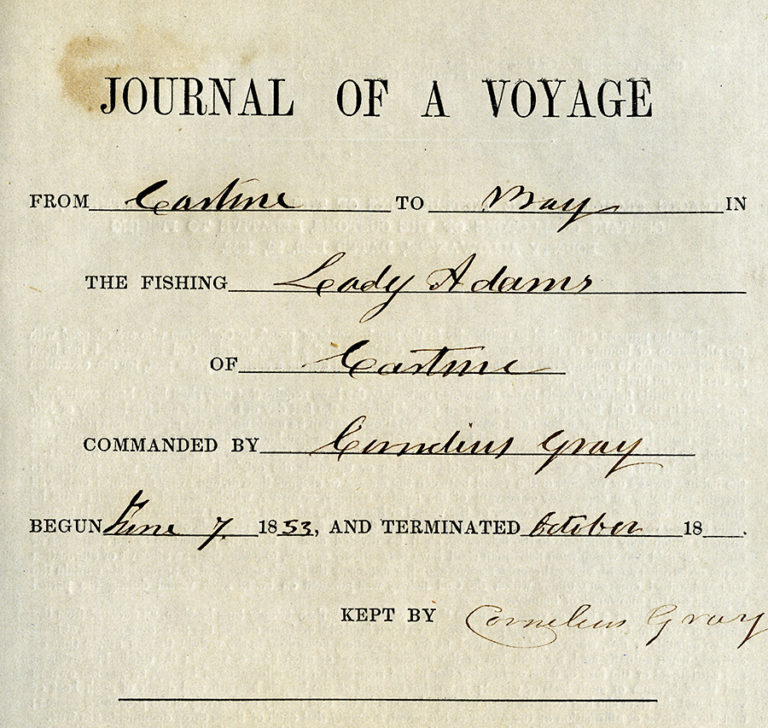 JOURNAL OF A VOYAGE
FROM Castine TO Bay IN
THE FISHING Lady Adams
OF Castine
COMMANDED BY Cornelius Gray
BEGUN June 7 1853, AND TERMINATED October 18 .
KEPT BY Cornelius Gray